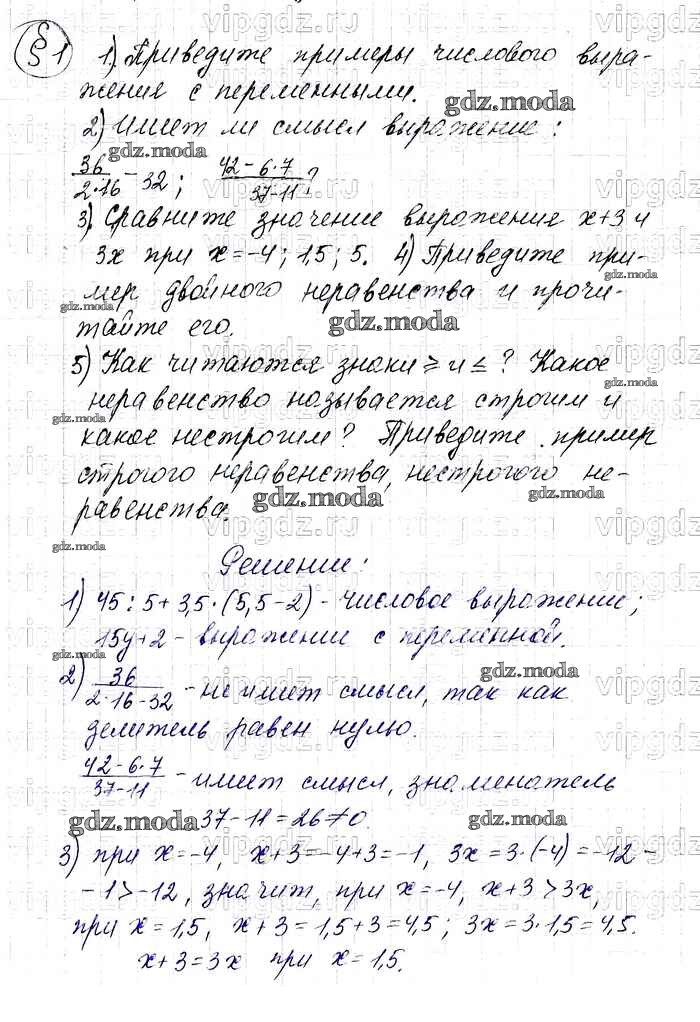 § 1
1) Приведите примеры числового выра-
жения с переменными.
2) Имеет ли смысл выражение:
36/(2·16) - 32; (42 - 6·7)/(37-11)?
3) Сравните значение выражения x+3 и
3x при x=-4; 1,5; 5. 4) Приведите при-
мер двойного неравенства и прочи-
тайте его.
5) Как читаются знаки ≥ и ≤? Какое
неравенство называется строгим и
какое нестрогим? Приведите пример
строгого неравенства, нестрогого не-
равенства.
Решение:
1) 45:5+3,5·(5,5-2) - числовое выражение;
15y+2 - выражении с переменной.
2) 36/(2·16-32) - не имеет смысл, так как
делитель равен нулю.
(42-6·7)/(37-11) - имеет смысл, знаменатель
37-11=26≠0.
3) при x=-4, x+3=-4+3=-1, 3x=3·(-4)=-12-
-1>-12, значит, при x=-4, x+3>3x,
при x=1,5, x+3=1,5+3=4,5; 3x=3·1,5=4,5.
x+3=3x при x=1,5.
gdz.moda
vipgdz.ru